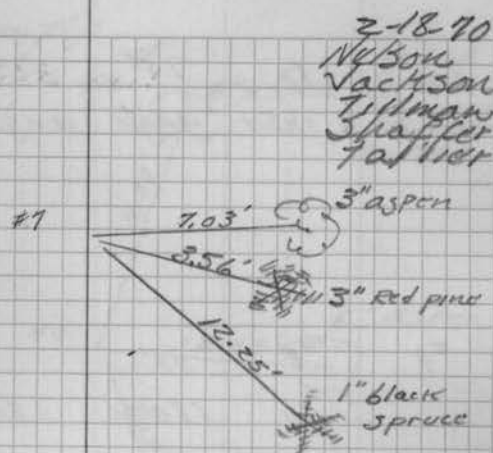 2-18-70
Nelson
Jackson
Tillman
Shaffer
#1
7.03'
3" aspen
3.56'
3" Red pine
12.25'
1" black
spruce